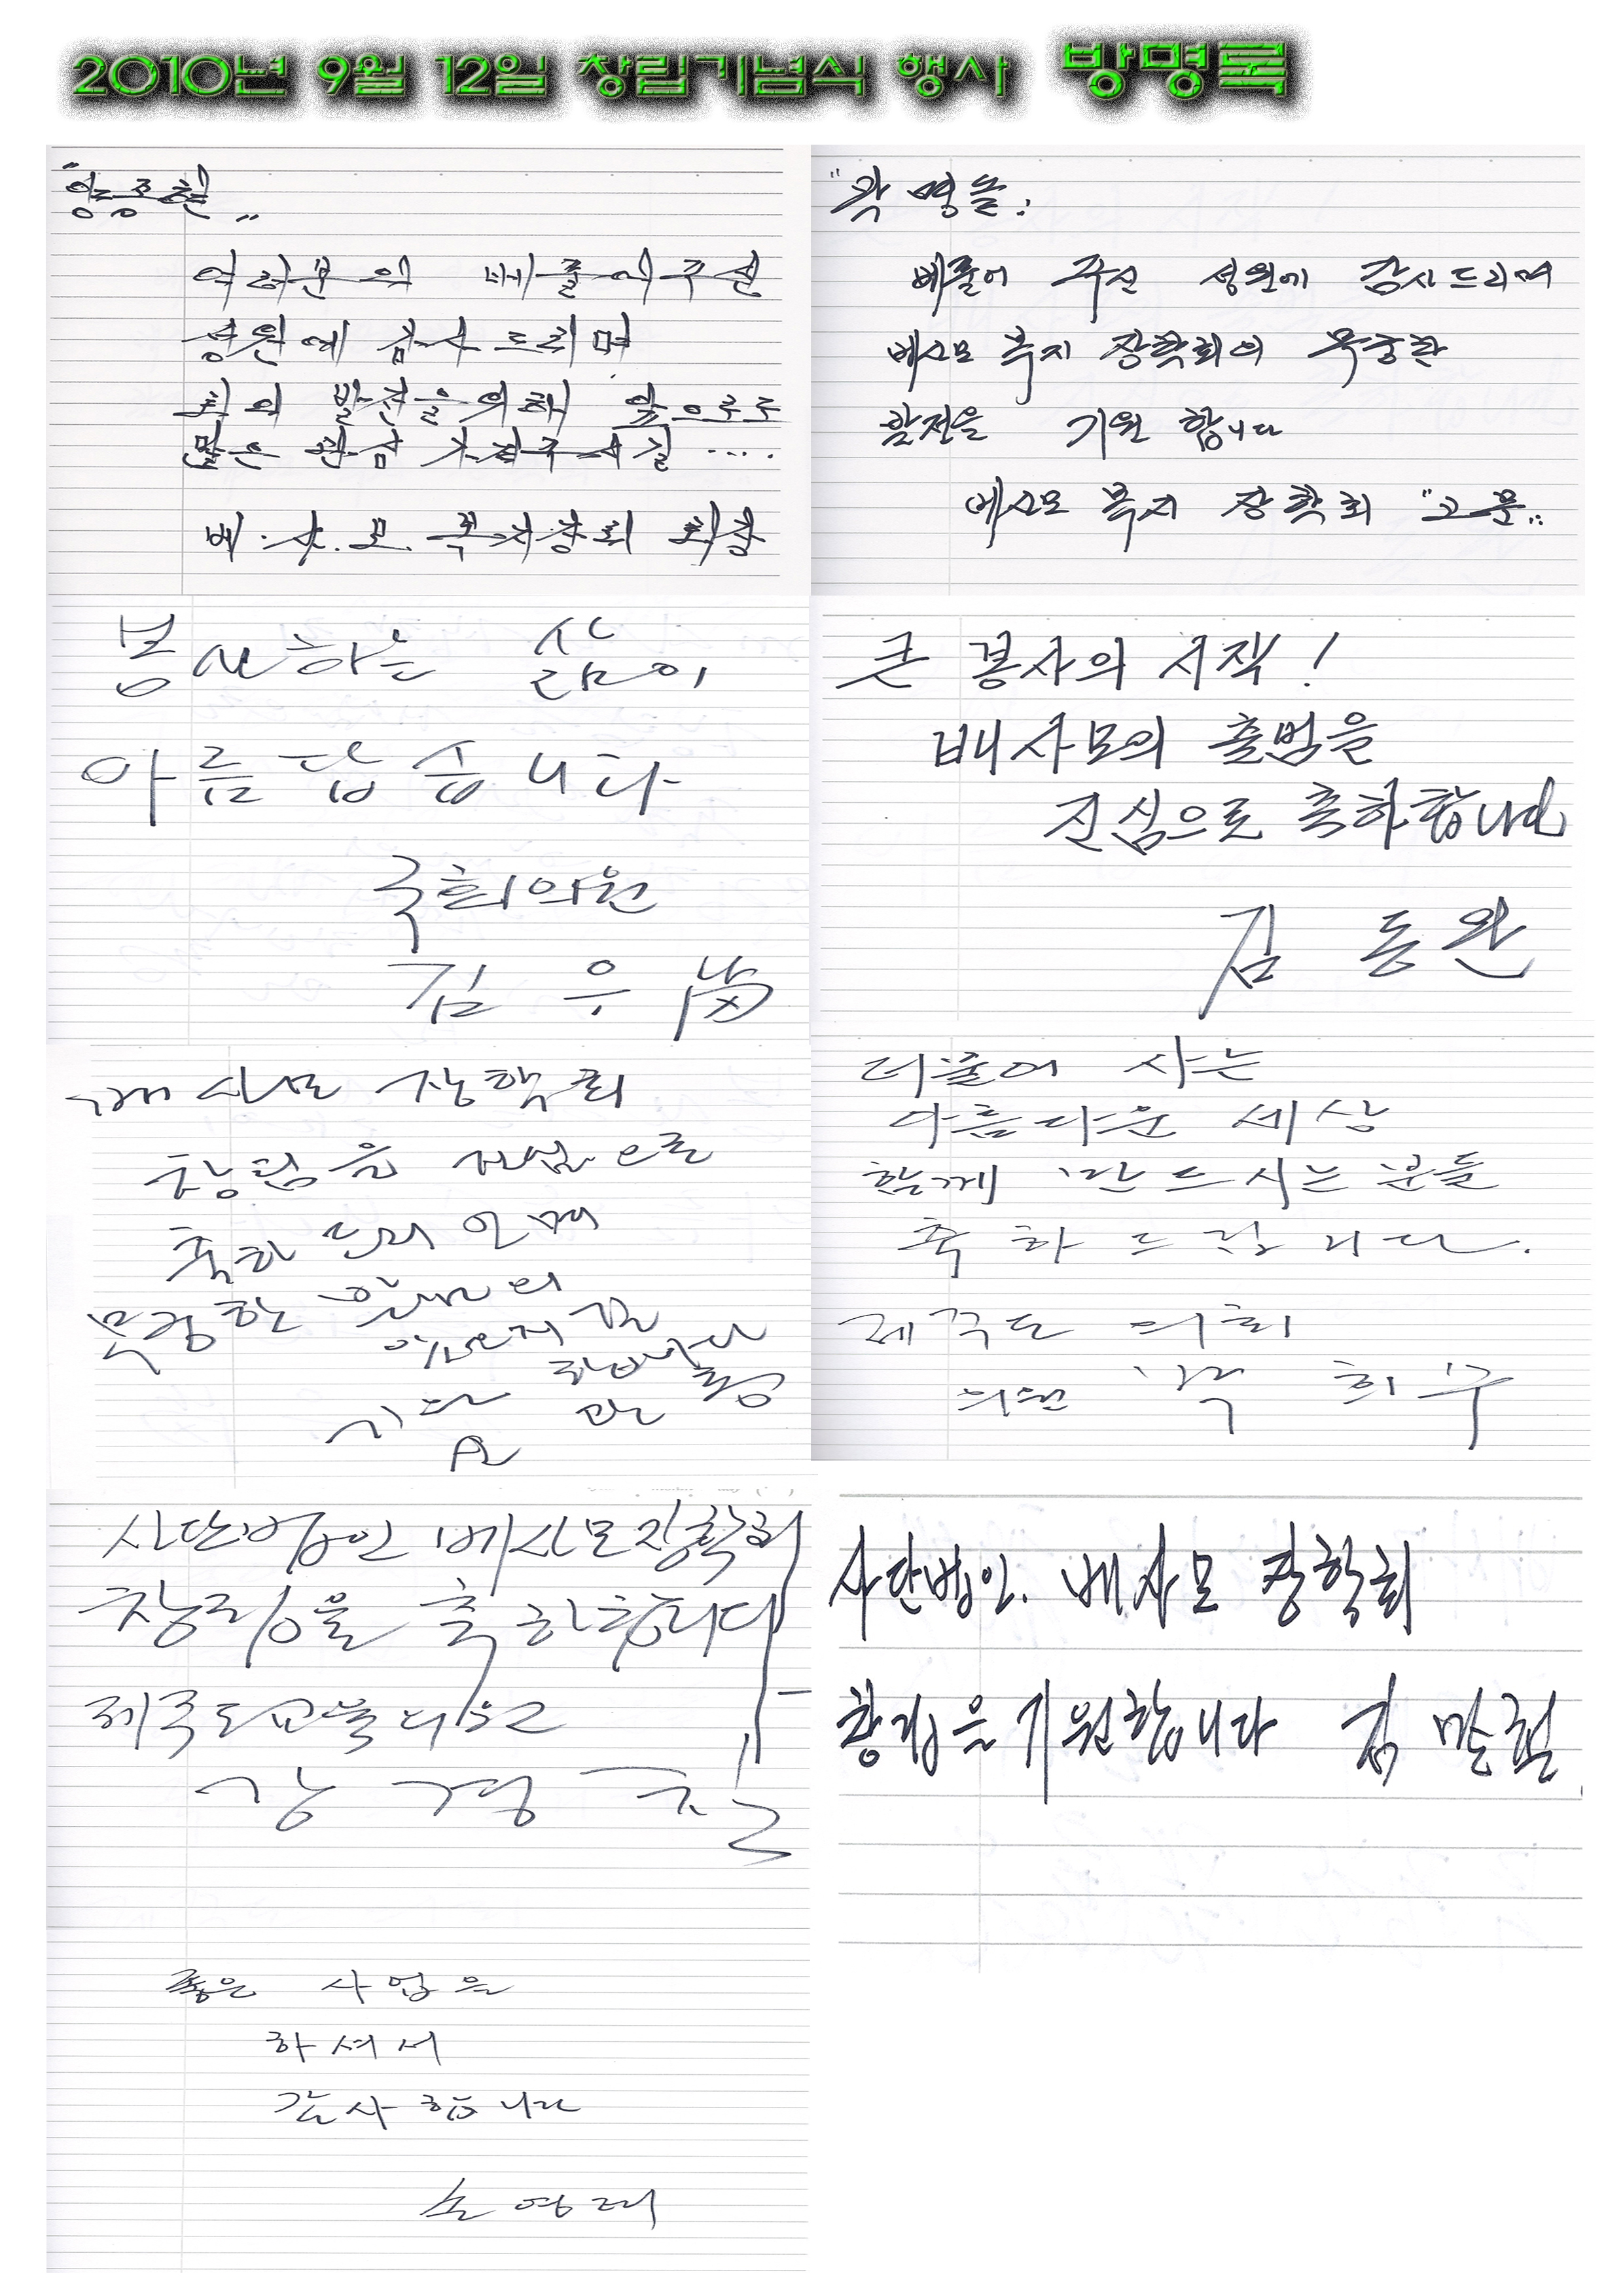 2010년 9월 12일 창립기념식 행사 방명록
여러분의 베풀어주신
성원에 감사드리며
회의 발전을 위해 앞으로도
많은 관심 가져주시길 ....
배.사.모. 복지장학회 회장
"곽명을"
베풀어 주신 성원에 감사드리며
배사모 복지 장학회의 무궁한
발전을 기원 합니다
배사모 복지 장학회 "고문"
봉사하는 삶이
아름답습니다
국회의원
김우남
큰 봉사의 시작!
배사모의 출범을
진심으로 축하합니다
김동완
배사모 장학회
창립을 진심으로
축하 드리오며
무궁한 발전의
더불어 사는
아름다운 세상
함께 만드시는 분들
축하드립니다.
제주도 의회
의원 박희수
사단법인 배사모장학회
창립을 축하합니다
제주도교육의원
강경
사단법인. 배사모 장학회
창립을 기원합니다 김
좋은 사업을
하셔서
감사합니다
손영래